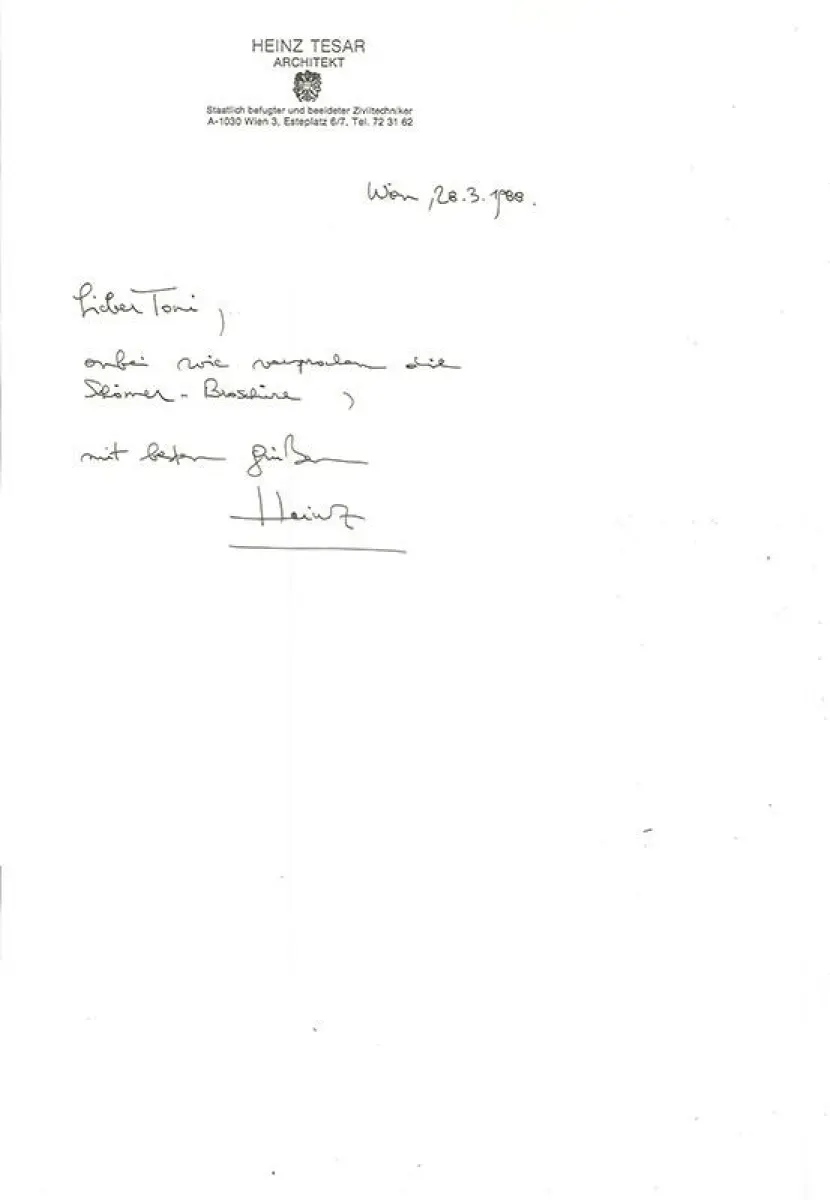 HEINZ TESAR
ARCHITEKT
Staatlich befugter und beeideter Ziviltechniker
A-1030 Wien 3, Esteplatz 6/7, Tel. 72 31 62
Wien, 28.3.1988.
Lieber Toni,
anbei wie versprochen die
Schömer-Broschüre,
mit besten Grüßen
Heinz